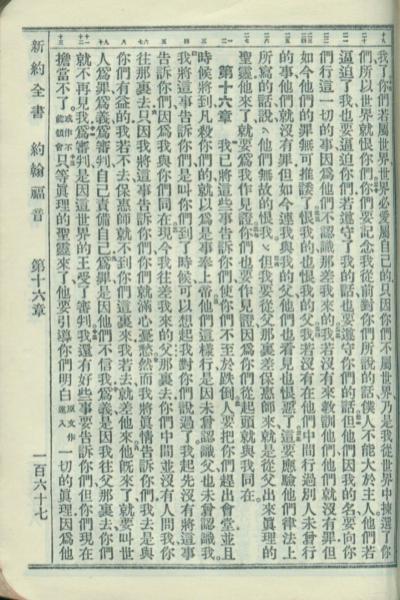 我了你們若屬世界世界必愛屬自己的只因你們不屬世界乃是我從世界中揀選了你
們所以世界就恨你們你們要記念我從前對你們所說的話僕人不能大於主人他們若
逼迫了我也要逼迫你們若遵守了我的話也要遵守你們的話但他們因我的名要向你
們行這一切的事因爲他們不認識那差我來的我若沒有來教訓他們他們就沒有罪但
如今他們的罪無可推諉了恨我的也恨我的父我若沒有在他們中間行過別人未曾行
的事他們就沒有罪但如今連我與我的父他們也看見也恨惡了這要應驗他們律法上
所寫的話說他們無故的恨我但我要從父那裏差保惠師來就是從父出來眞理的
聖靈他來了就要爲我作見證你們也要作見證因爲你們從起頭就與我同在
第十六章 我已將這些事告訴你們使你們不至於跌倒人要把你們趕出會堂並且
時候將到凡殺你們的就以爲是事奉上帝他們這樣行是因未曾認識父也未曾認識我
我將這事告訴你們是叫你們到了時候可以想起我對你們說過了我起先沒有將這事
告訴你們因爲我與你們同在現今我往差我來的父那裏去你們中間並沒有人問我你
往那裏去只因我將這事告訴你們你們就滿心憂愁然而我將眞情告訴你們我去是與
你們有益的我若不去保惠師就不到你們這裏來我若去就差他來他旣來了就要叫世
人爲罪爲義爲審判自己責備自己爲罪是因他們不信我爲義是因我往父那裏去你們
就不再見我爲審判是因這世界的王受了審判我還有好些事要告訴你們但你們現在
擔當不了或作不能領會只等眞理的聖靈來了他要引導你們明白原文作進入一切的眞理因爲他
新約全書 約翰福音 第十六章 一百六十七